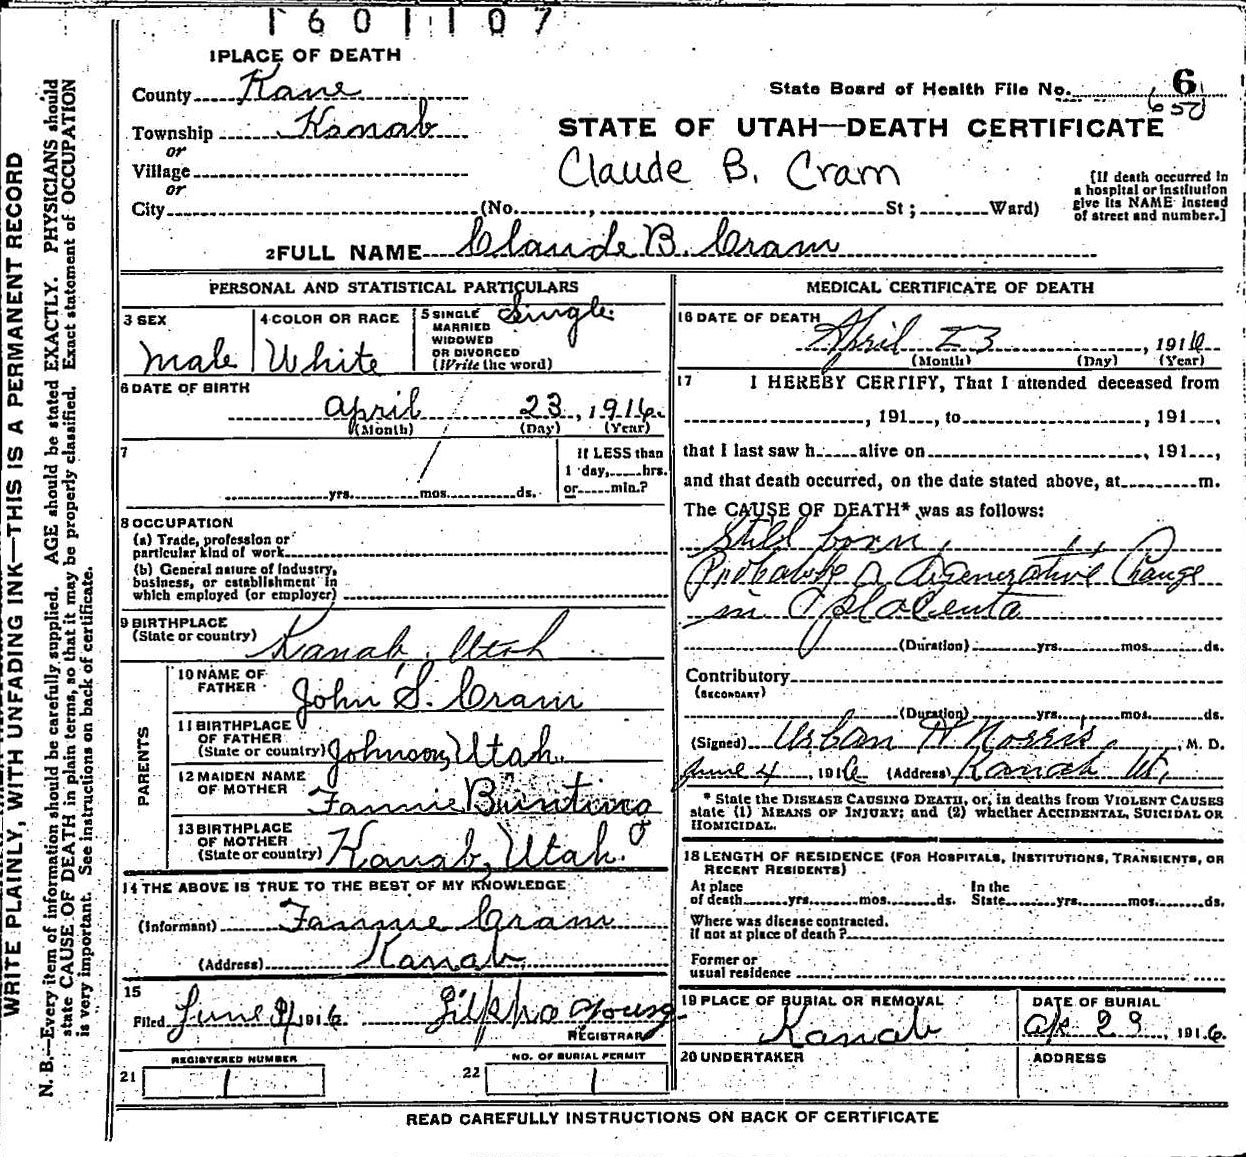 1601107
1 PLACE OF DEATH
County Kane
State Board of Health File No. 6
650
Township Kanab
or
STATE OF UTAH—DEATH CERTIFICATE
Village
or
Claude B. Cram
[If death occurred in
a hospital or institution
give its NAME instead
of street and number.]
City (No. , St ; Ward)
2 FULL NAME Claude B. Cram
PERSONAL AND STATISTICAL PARTICULARS
3 SEX
Male
4 COLOR OR RACE
White
5 SINGLE
MARRIED
WIDOWED
OR DIVORCED
(Write the word)
Single
6 DATE OF BIRTH
April 23, 1916.
(Month) (Day) (Year)
7
yrs. mos. ds.
If LESS than
1 day, hrs.
or min.?
8 OCCUPATION
(a) Trade, profession or
particular kind of work
(b) General nature of industry,
business, or establishment in
which employed (or employer)
9 BIRTHPLACE
(State or country) Kanab, Utah
PARENTS
10 NAME OF
FATHER John S. Cram
11 BIRTHPLACE
OF FATHER
(State or country) Johnson, Utah.
12 MAIDEN NAME
OF MOTHER Fannie Bunting
13 BIRTHPLACE
OF MOTHER
(State or country) Kanab, Utah.
14 THE ABOVE IS TRUE TO THE BEST OF MY KNOWLEDGE
(Informant) Fannie Cram
(Address) Kanab
15
Filed June 9, 1916 Zilpha Young
REGISTRAR
REGISTERED NUMBER
21 1
NO. OF BURIAL PERMIT
22 1
MEDICAL CERTIFICATE OF DEATH
16 DATE OF DEATH
April 23, 1916
(Month) (Day) (Year)
17 I HEREBY CERTIFY, That I attended deceased from
, 191 , to , 191 ,
that I last saw h alive on , 191 ,
and that death occurred, on the date stated above, at m.
The CAUSE OF DEATH* was as follows:
Still born,
Probably a degenerative Change
in placenta
(Duration) yrs. mos. ds.
Contributory
(SECONDARY)
(Duration) yrs. mos. ds.
(Signed) Urban H Norris, M. D.
June 4, 1916 (Address) Kanab Ut,
* State the DISEASE CAUSING DEATH, or, in deaths from VIOLENT CAUSES
state (1) MEANS OF INJURY; and (2) whether ACCIDENTAL, SUICIDAL OR
HOMICIDAL.
18 LENGTH OF RESIDENCE (FOR HOSPITALS, INSTITUTIONS, TRANSIENTS, OR
RECENT RESIDENTS)
At place In the
of death yrs. mos. ds. State yrs. mos. ds.
Where was disease contracted.
if not at place of death ?
Former or
usual residence
19 PLACE OF BURIAL OR REMOVAL
Kanab
DATE OF BURIAL
Ap 29, 1916.
20 UNDERTAKER
ADDRESS
READ CAREFULLY INSTRUCTIONS ON BACK OF CERTIFICATE
WRITE PLAINLY, WITH UNFADING INK—THIS IS A PERMANENT RECORD
N. B.—Every item of information should be carefully supplied. AGE should be stated EXACTLY. PHYSICIANS should
state CAUSE OF DEATH in plain terms, so that it may be properly classified. Exact statement of OCCUPATION
is very important. See instructions on back of certificate.